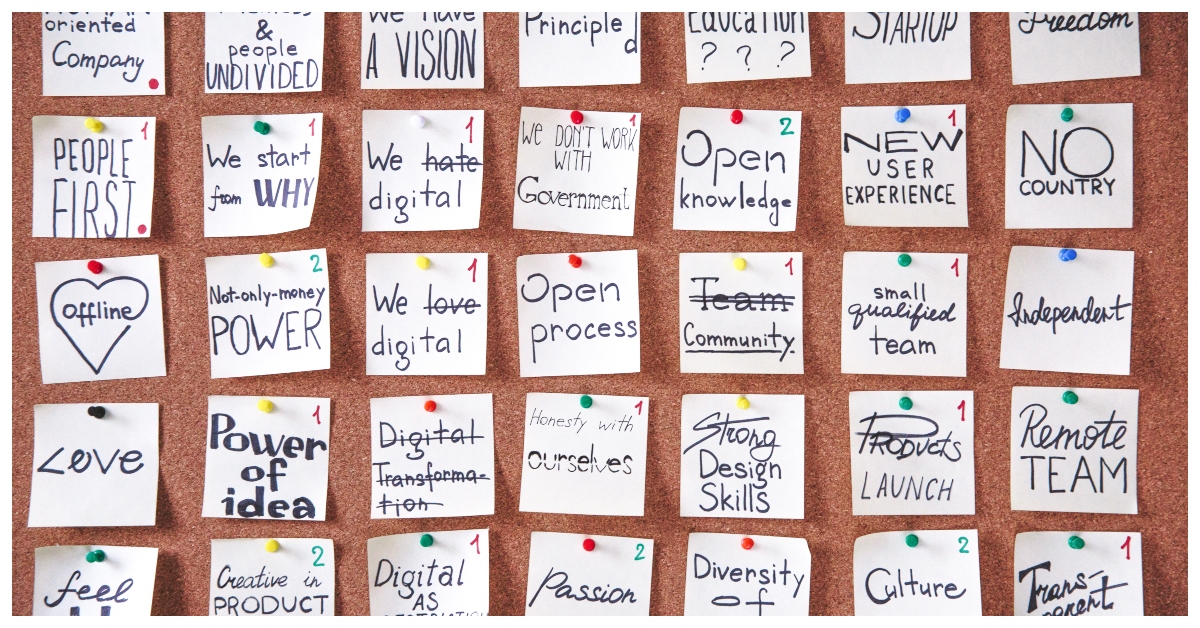 oriented
Company
&
people
UNDIVIDED
We have
A VISION
Principled
Education
? ? ?
STARTUP
Freedom
1
PEOPLE
FIRST
1
We start
from WHY
1
We hate
digital
1
We DON'T WORK
WITH
Government
2
Open
knowledge
1
NEW
USER
EXPERIENCE
NO
COUNTRY
offline
2
Not-only-money
POWER
1
We love
digital
Open
process
1
Team
Community
1
small
qualified
team
Independent
Love
1
Power
of
idea
Digital
Transforma-
tion
1
Honesty with
ourselves
Strong
Design
Skills
1
PRODUCTS
LAUNCH
Remote
TEAM
feel
2
Creative in
PRODUCT
1
Digital
AS
2
Passion
Diversity
of
2
Culture
1
Trans-
parent